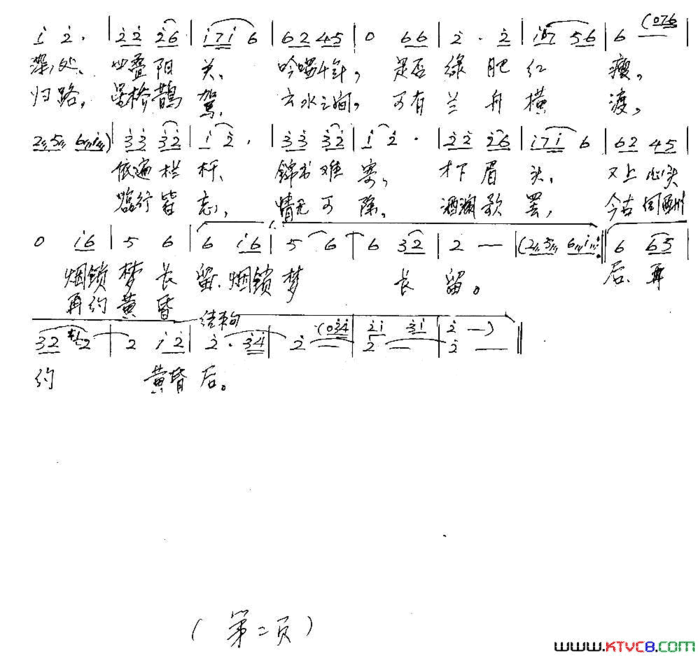 i 2 · | 2 2 2 6 | i 7 i 6 | 6 2 4 5 | 0 6 6 | 2 · 2 | i 6 7 5 · 6 | 6 (0 7 6
深处、 叠阳 关、 吟 是否 绿 肥 红 瘦。
归路, 桥鹊 驾, 云水之间, 可有 兰 舟 横 渡,
3 3 3 2 | i 2 · | 3 3 3 2 | i 2 · | 2 2 2 6 | i 7 i 6 | 6 2 4 5 |
依遍 栏 杆、 锦书 难 寄, 才下 眉 头、 又上 心头
临行 皆 忘, 情无 可 除。 酒阑 歌 罢, 今古
0 i 6 | 5 6 | 6 i 6 | 5 6 | 6 3 2 | 2 — | 6 6 5 |
烟锁 梦 长 留、烟锁 梦 长 留。 后、再
再约 黄 昏
结束句
3 2 2 | 2 i 2 | 2 · 3 4 | 2 · (0 3 4 | 2 i 3 i | 2 —) ‖
2 — 2 —
约 黄昏 后。
(第二页)
www.KTVC8.com